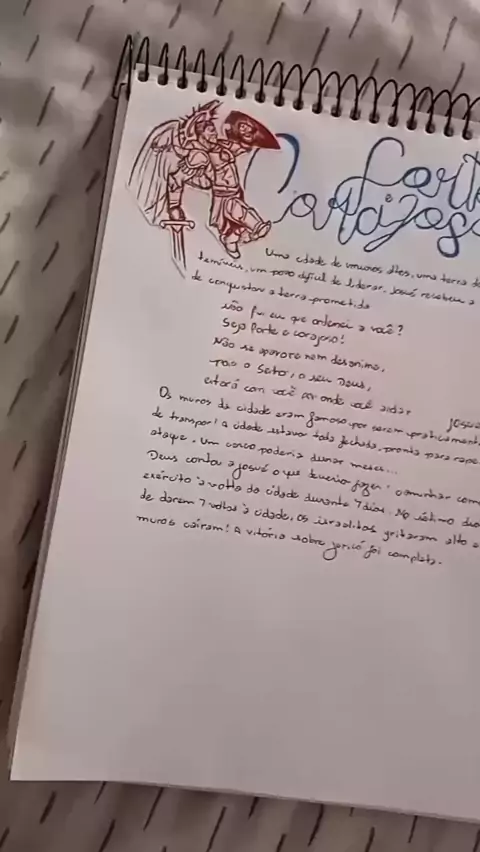 Forte
Corajoso
Uma cidade de muros altos, uma terra de
temíveis, um povo difícil de liderar. Josué recebeu a
de conquistar a terra prometida
Não fui eu que ordenei a você?
Seja forte e corajoso!
Não se apavore nem desanime,
pois o Senhor, o seu Deus,
estará com você por onde você andar
Josué
Os muros da cidade eram famosos por serem praticamente
de transpor! A cidade estava toda fechada, pronta para
ataque. Um cerco poderia durar meses...
Deus contou a Josué o que deveria fazer: caminhar com
exército à volta da cidade durante 7 dias. No último dia
de darem 7 voltas à cidade, os israelitas gritaram alto e
muros caíram! A vitória sobre Jericó foi completa.